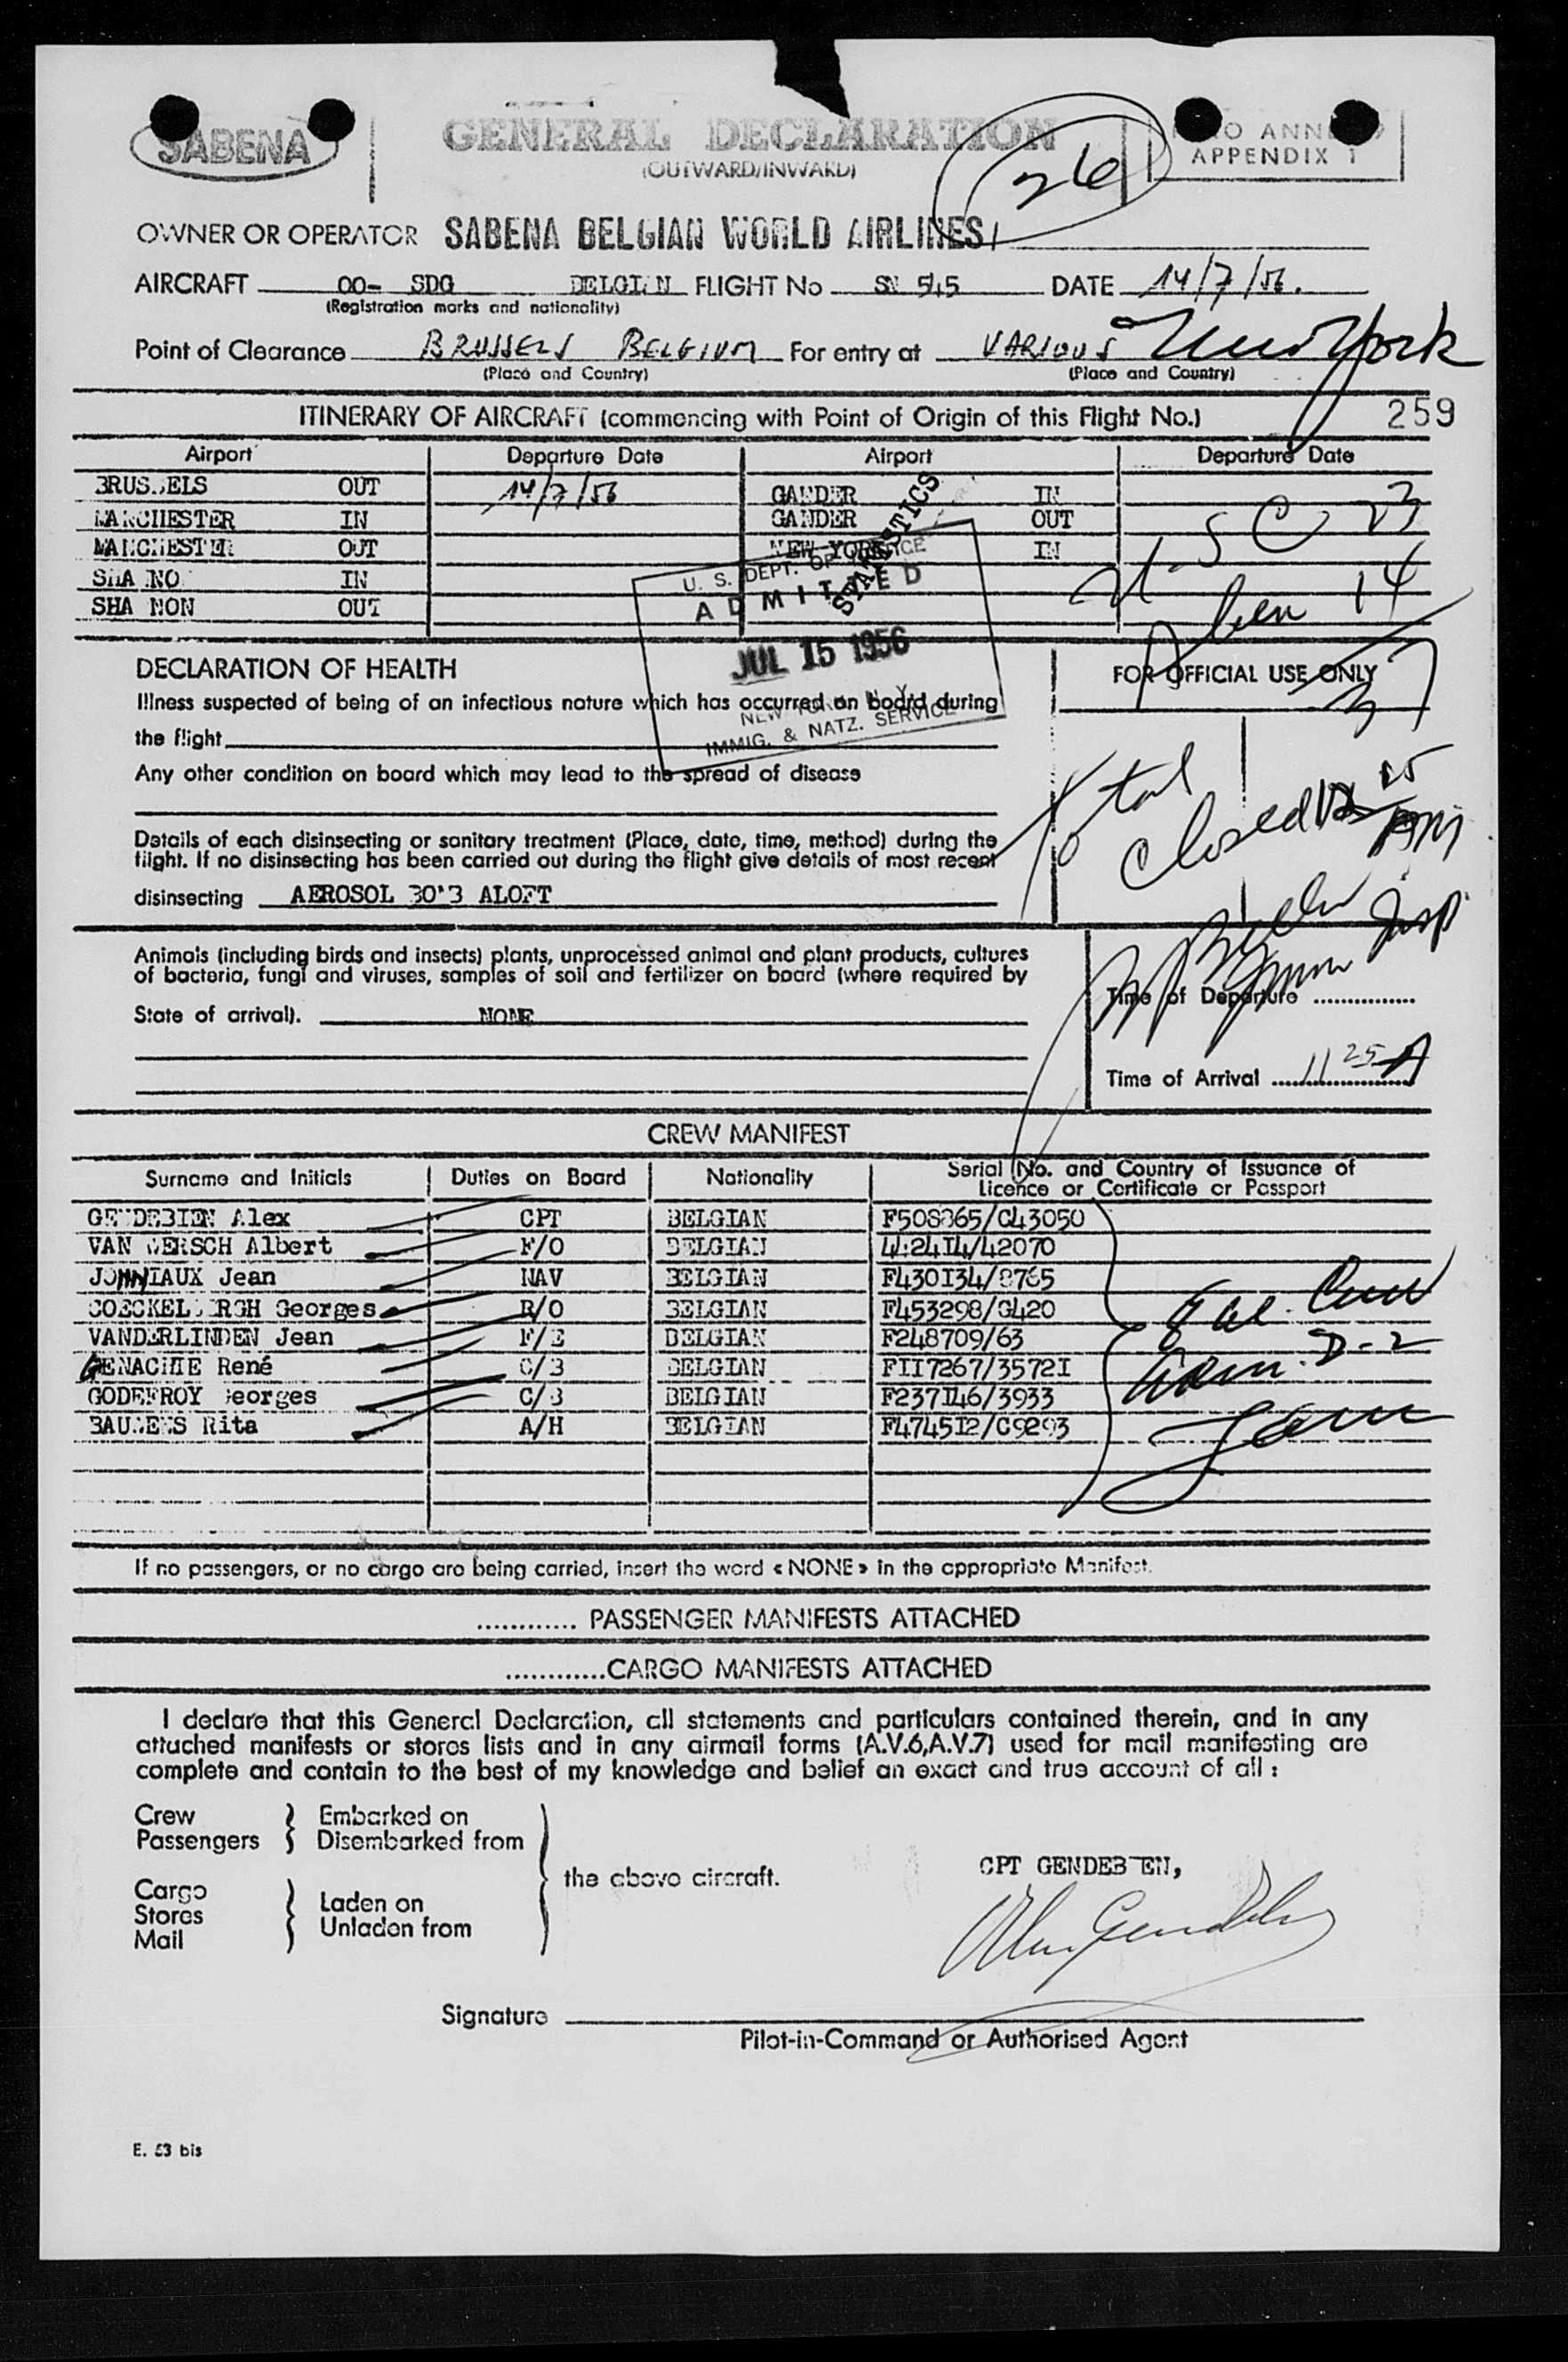 SABENA
GENERAL DECLARATION
(OUTWARD/INWARD)
26
APPENDIX 1
OWNER OR OPERATOR SABENA BELGIAN WORLD AIRLINES
AIRCRAFT OO- SDG FLIGHT No SN 545 DATE 14/7/56.
(Registration marks and nationality)
Point of Clearance BRUSSELS BELGIUM For entry at VARIOUS New York
(Place and Country) (Place and Country)
ITINERARY OF AIRCRAFT (commencing with Point of Origin of this Flight No.)
259
Airport Departure Date Airport Departure Date
BRUSSELS OUT 14/7/56 GANDER IN
MANCHESTER IN GANDER OUT
MANCHESTER OUT NEW YORK IN
SHANNON IN
SHANNON OUT
U.S. C 23
Alien 14
STATISTICS
U. S. DEPT. OF JUSTICE
ADMITTED
JUL 15 1956
NEW YORK, N. Y.
IMMIG. & NATZ. SERVICE
DECLARATION OF HEALTH
FOR OFFICIAL USE ONLY
37
Illness suspected of being of an infectious nature which has occurred on board during
the flight
Any other condition on board which may lead to the spread of disease
Total
Closed
Details of each disinsecting or sanitary treatment (Place, date, time, method) during the
flight. If no disinsecting has been carried out during the flight give details of most recent
disinsecting AEROSOL 30'3 ALOFT
Insp
Animals (including birds and insects) plants, unprocessed animal and plant products, cultures
of bacteria, fungi and viruses, samples of soil and fertilizer on board (where required by
State of arrival). NONE
Time of Departure
Time of Arrival 11 25 A
CREW MANIFEST
Surname and Initials Duties on Board Nationality Serial No. and Country of Issuance of
Licence or Certificate or Passport
GENDEBIEN Alex CPT BELGIAN F508865/C43050
VAN WERSCH Albert F/O BELGIAN
JONNIAUX Jean NAV BELGIAN F430I34/8765
COECKELBERGH Georges R/O BELGIAN F453298/0420
VANDERLINDEN Jean F/E BELGIAN F248709/63
GENACHTE René C/B BELGIAN FII7267/3572I
GODEFROY Georges C/B BELGIAN F237I46/3933
BAUWENS Rita A/H BELGIAN F4745I2/C9293
8 al. Crew
Adm. D-2
If no passengers, or no cargo are being carried, insert the word « NONE » in the appropriate Manifest.
............ PASSENGER MANIFESTS ATTACHED
............CARGO MANIFESTS ATTACHED
I declare that this General Declaration, all statements and particulars contained therein, and in any
attached manifests or stores lists and in any airmail forms (A.V.6,A.V.7) used for mail manifesting are
complete and contain to the best of my knowledge and belief an exact and true account of all :
Crew
Passengers
Embarked on
Disembarked from
Cargo
Stores
Mail
Laden on
Unladen from
the above aircraft.
CPT GENDEBIEN,
Signature
Pilot-in-Command or Authorised Agent
E. 53 bis